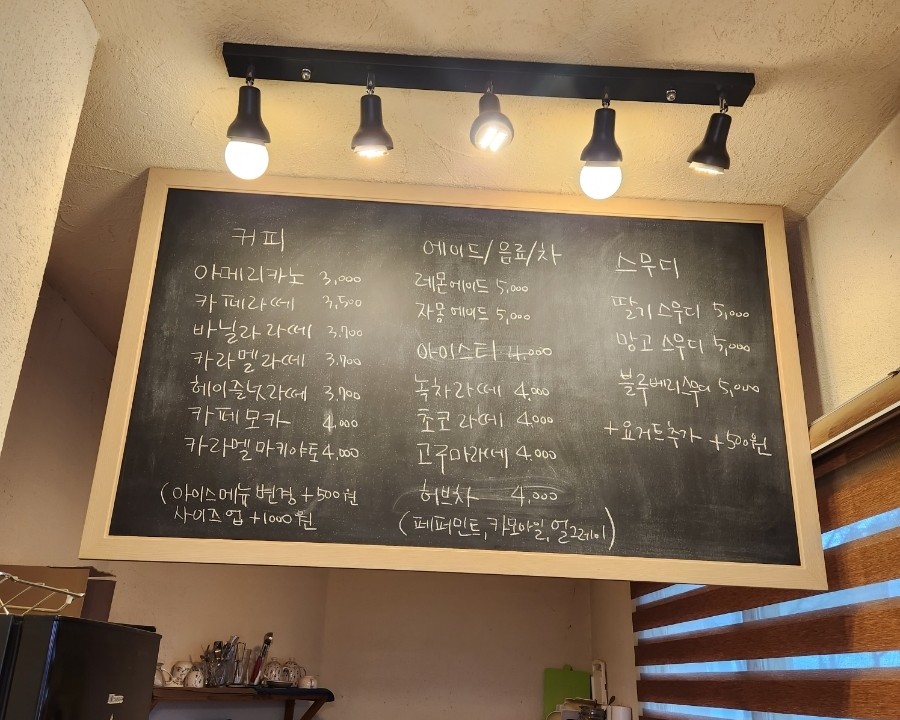 커피
아메리카노 3,000
카페라떼 3,500
바닐라라떼 3,700
카라멜라떼 3,700
헤이즐넛라떼 3,700
카페모카 4,000
카라멜마키야토 4,000
(아이스메뉴 변경 +500원
사이즈 업 +1000원
에이드/음료/차
레몬에이드 5,000
자몽에이드 5,000
아이스티 4,000
녹차라떼 4,000
쵸코라떼 4,000
고구마라떼 4,000
허브차 4,000
(페퍼민트, 카모마일, 얼그레이)
스무디
딸기스무디 5,000
망고 스무디 5,000
블루베리스무디 5,000
+요거트추가 +500원